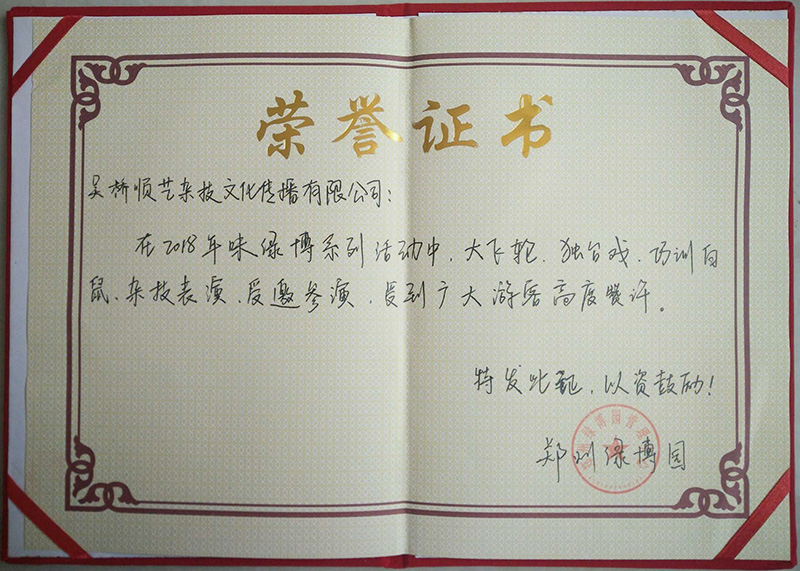 荣誉证书
吴桥顺艺杂技文化传播有限公司：
在2018年味绿博系列活动中，大飞轮、独台戏、巧训白
鼠、杂技表演，受邀参演，受到广大游客高度赞许。
特发此证，以资鼓励！
郑州绿博园